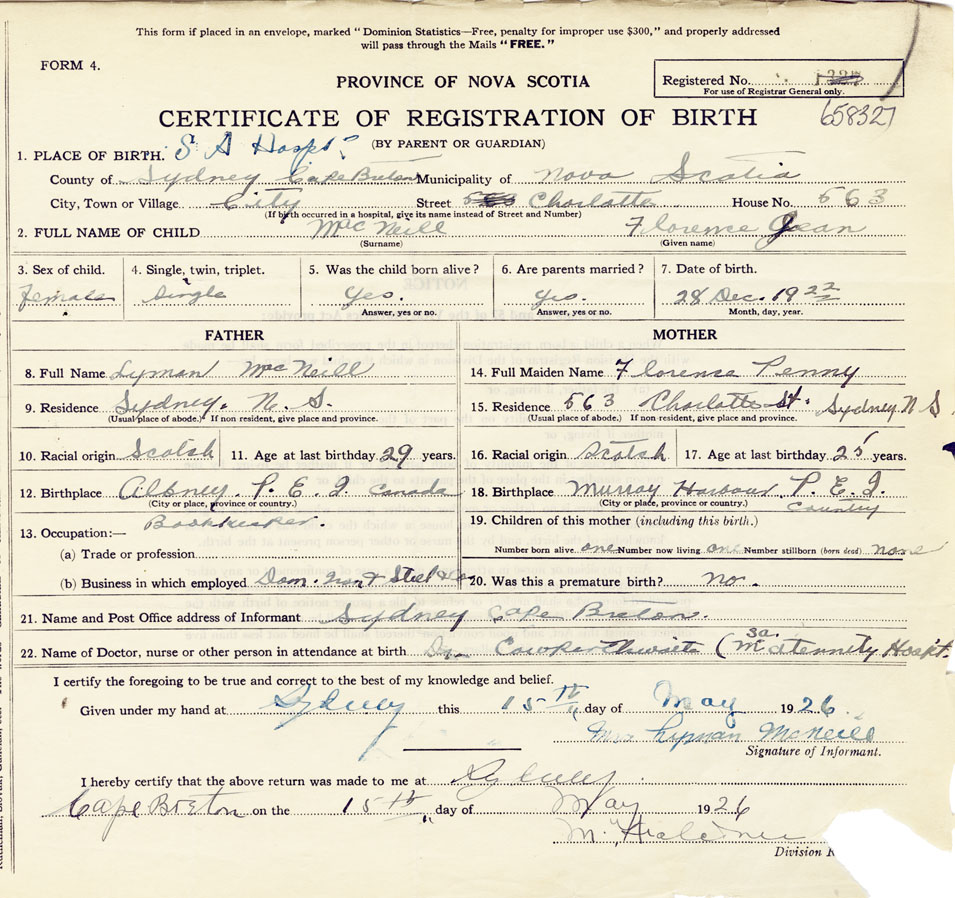 This form if placed in an envelope, marked "Dominion Statistics—Free, penalty for improper use $300," and properly addressed
will pass through the Mails "FREE."
FORM 4.
PROVINCE OF NOVA SCOTIA
Registered No.
For use of Registrar General only.
CERTIFICATE OF REGISTRATION OF BIRTH
658327
(BY PARENT OR GUARDIAN)
1. PLACE OF BIRTH. S A Hosp
County of Sydney Cape Breton Municipality of Nova Scotia
City, Town or Village City Street Charlotte House No. 563
(If birth occurred in a hospital, give its name instead of Street and Number)
2. FULL NAME OF CHILD MacNeill Florence Jean
(Surname) (Given name)
3. Sex of child. 4. Single, twin, triplet. 5. Was the child born alive? 6. Are parents married? 7. Date of birth.
female single Yes. Yes. 28 Dec. 1922
Answer, yes or no. Answer, yes or no. Month, day, year.
FATHER MOTHER
8. Full Name Lyman MacNeill 14. Full Maiden Name Florence Penny
9. Residence Sydney. N. S. 15. Residence 563 Charlotte St. Sydney N S
(Usual place of abode.) If non resident, give place and province. (Usual place of abode.) If non resident, give place and province.
10. Racial origin Scotch 11. Age at last birthday 29 years. 16. Racial origin Scotch 17. Age at last birthday 25 years.
12. Birthplace P. E. I. Canada 18. Birthplace Murray Harbour, P. E. I.
(City or place, province or country.) (City or place, province or country.) Country
Bookkeeper. 19. Children of this mother (including this birth.)
13. Occupation:—
(a) Trade or profession Number born alive one Number now living one Number stillborn (born dead) none
(b) Business in which employed Dom. Iron & Steel Co 20. Was this a premature birth? no.
21. Name and Post Office address of Informant Sydney Cape Breton.
22. Name of Doctor, nurse or other person in attendance at birth (Maternity Hospt.
I certify the foregoing to be true and correct to the best of my knowledge and belief.
Given under my hand at Sydney this 15th day of May 1926.
Mrs Lyman McNeill
Signature of Informant.
I hereby certify that the above return was made to me at Sydney
Cape Breton on the 15th day of May 1926
Division